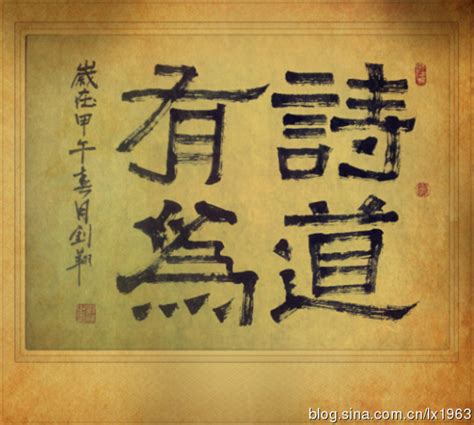 詩道
有為
歲在甲午春月翔
blog.sina.com.cn/lx1963